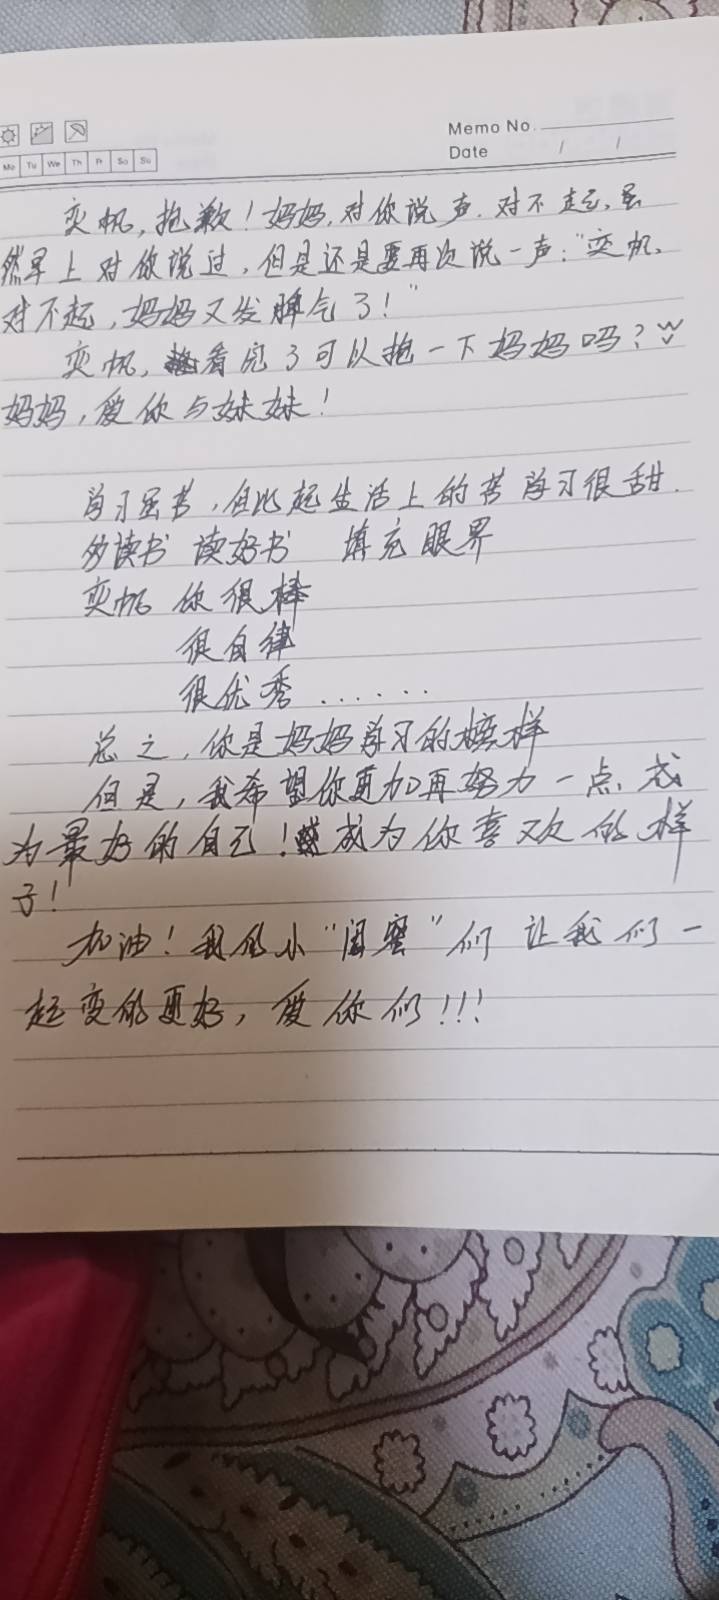 Memo No.
Date / /
Mo Tu We Th Fr Sa Su
奕帆,抱歉!妈妈,对你说声.对不起,虽
然早上对你说过,但是还是要再次说一声:"奕帆,
对不起,妈妈又发脾气了!"
奕帆,看完了可以抱一下妈妈吗?
妈妈,爱你与妹妹!
学习虽苦,但比起生活上的苦学习很甜.
多读书 读好书 填充眼界
奕帆 你很棒
很自律
很优秀......
总之,你是妈妈学习的榜样
但是,我希望你更加再努力一点,成
为最好的自己!成为你喜欢的样
子!
加油!我的小"闺蜜"们 让我们一
起变的更好,爱你们!!!